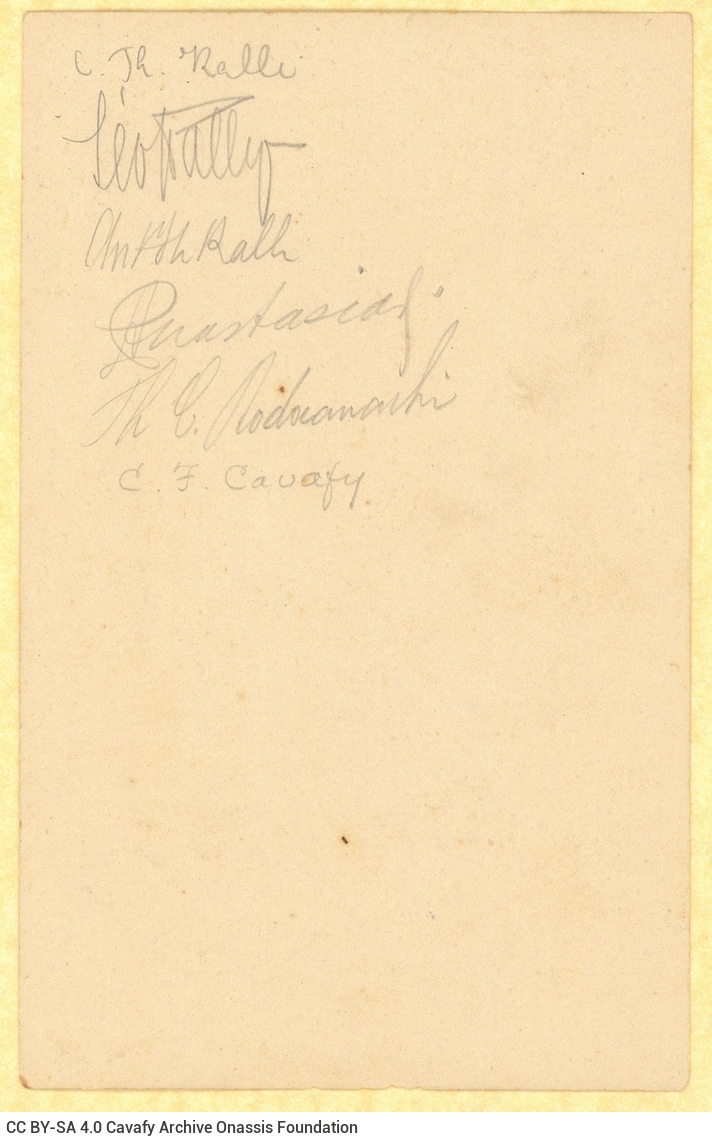 C. Th. Ralli
Léo Rally
Ant Th Ralli
Anastasiadi
Th C. Rodocanachi
C. F. Cavafy
CC BY-SA 4.0 Cavafy Archive Onassis Foundation